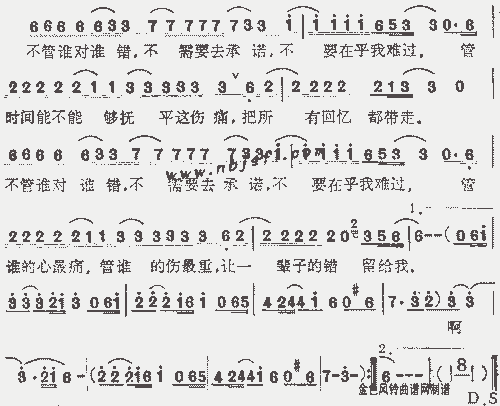 6 6 6 6 6 3 3 7 7 7 7 7 7 3 3 i | i i i i 6 5 3 3 0 · 6
不管谁对谁 错,不 需要去承 诺,不 要在乎我难过, 管
2 2 2 2 2 1 1 3 3 3 3 3 3 3 6 2 | 2 2 2 2 2 1 3 3 0
时间能不能 够抚 平这伤 痛,把所 有回忆 都带走。
6 6 6 6 6 3 3 7 7 7 7 7 7 3 3 i | i i i i 6 5 3 3 0 · 6
不管谁对 谁 错,不 需要去 承 诺,不 要在乎我难过, 管
1.
2 2 2 2 2 1 1 3 3 3 3 3 3 6 2 | 2 2 2 2 2 0 3 5 6 | 6 - - ( 0 6 i
谁的心最痛, 管谁 的伤最重,让一 辈子的错 留给我。
3 3 3 2 i 3 0 6 i | 2 2 2 1 6 i 0 6 5 | 4 2 4 4 i 6 0 # 6 | 7 · 3 2 ) 3 3
啊
2.
3 · 2 i 6 - ( 2 2 2 1 6 i 0 6 5 | 4 2 4 4 i 6 0 # 6 | 7 - 3 - ) : 6 - - - ( | 8 | )
金色风铃曲谱网制谱
D.S